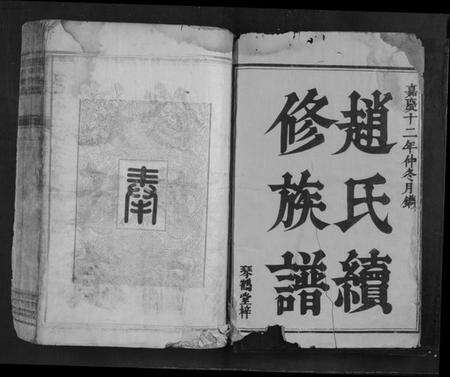 嘉慶十二年仲冬月鐫
趙氏續
修族譜
琴鶴堂梓
奉